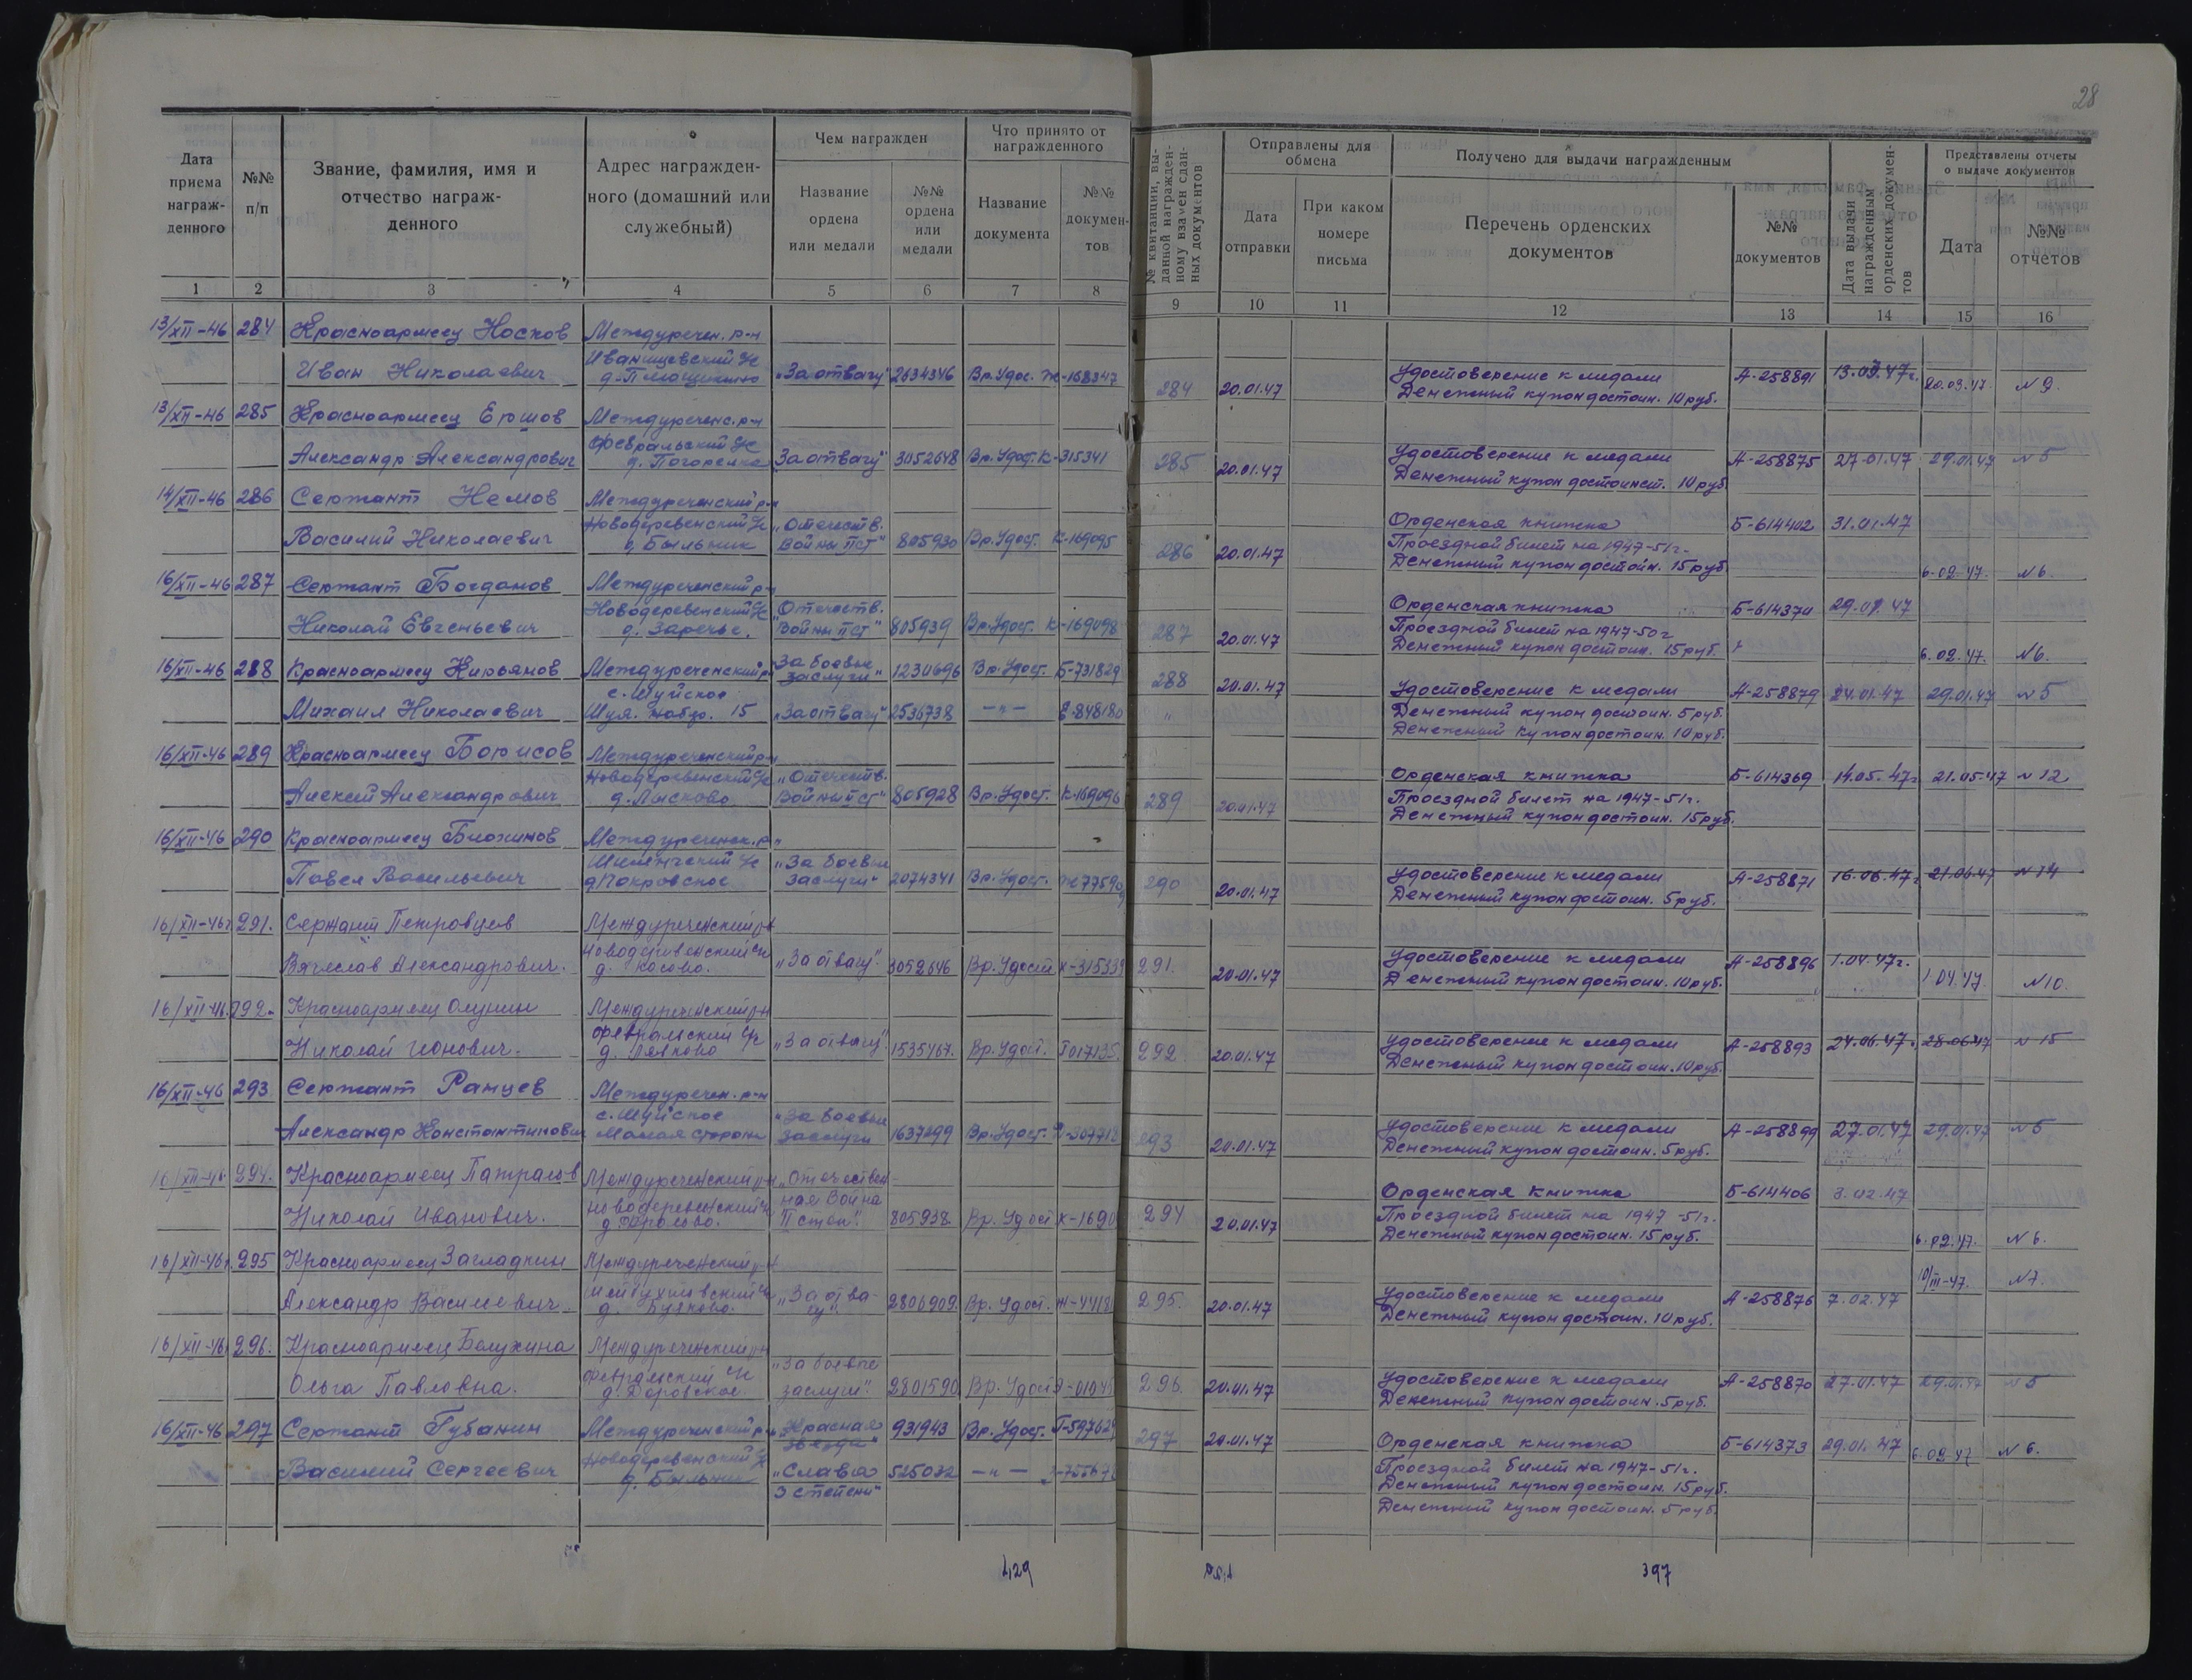 28
Дата приема награж-денного
№№ п/п
Звание, фамилия, имя и отчество награж-денного
Адрес награжден-ного (домашний или служебный)
Чем награжден
Название ордена или медали
№№ ордена или медали
Что принято от награжденного
Название документа
№№ докумен-тов
№ квитанции, вы-данной награжден-ному взамен сдан-ных документов
Отправлены для обмена
Дата отправки
При каком номере письма
Получено для выдачи награжденным
Перечень орденских документов
№№ документов
Дата выдачи награжденным орденских докумен-тов
Представлены отчеты о выдаче документов
Дата
№№ отчетов
1 2 3 4 5 6 7 8 9 10 11 12 13 14 15 16
13/XII-46 284 Красноармеец Носков Междуречен. р-н
Иван Николаевич Иванищевский с/с "За отвагу" 2634346 Вр. Удос. Ж-168347 284 20.01.47 Удостоверение к медали А-258891 20.03.47. №9
Денежный купон достоин. 10 руб.
13/XII-46 285 Красноармеец Ершов Междуреченс. р-н
Февральский с/с
Александр Александрович д. Погорелка "За отвагу" 3052648 Вр. Удост. К-315341 285 20.01.47 Удостоверение к медали А-258875 27-01.47 29.01.47 №5
Денежный купон достоинст. 10 руб.
14/XII-46 286 Сержант Немов Междуреченский р-н
Новодеревенский с/с "Отечеств. Орденская книжка Б-614402 31.01.47
Василий Николаевич д. Быльник Войны II ст" 805930 Вр. Удост. К-169095 286 20.01.47 Проездной билет на 1947-51г.
Денежный купон достоин. 15 руб. 6.02.47. №6.
16/XII-46 287 Сержант Богданов Междуреченский р-н
Новодеревенский с/с Отечеств. Орденская книжка Б-614370 29.01.47
Николай Евгеньевич д. Заречье. "Войны II ст" 805939 Вр. Удост. К-169098 287 20.01.47 Проездной билет на 1947-50г
Денежный купон достоин. 15 руб. 6.02.47. №6.
16/XII-46 288 Красноармеец Кирьянов Междуреченский р-н За боевые заслуги" 1230696 Вр. Удост. Б-731829 288 20.01.47 Удостоверение к медали А-258879 24.01.47 29.01.47 №5
с. Шуйское
Михаил Николаевич Шуя. набер. 15 "За отвагу" 2536738 -"- Е-848180 " Денежный купон достоин. 5 руб.
Денежный купон достоин. 10 руб.
16/XII-46 289 Красноармеец Борисов Междуреченский р-н
Новодеревенский с/с "Отечеств. Орденская книжка Б-614369 14.05.47г 21.05.47 №12
Алексей Александрович д. Лысково Войны II ст" 805928 Вр. Удост. К-169096 289 20.01.47 Проездной билет на 1947-51г.
Денежный купон достоин. 15 руб.
16/XII-46 290 Красноармеец Блохинов Междуреченск. р-н
"За боевые
Павел Васильевич д Покровское заслуги" 2074341 Вр. Удост. 290 20.01.47 Удостоверение к медали А-258871 16.06.47г 21.06.47 №14
Денежный купон достоин. 5 руб.
16/XII-46г 291. Сержант Петровцев Междуреченский р-н
Новодеревенский с/с
Вячеслав Александрович. д. Косово. "За отвагу". 3052646 Вр. Удост К-315339 291. 20.01.47 Удостоверение к медали А-258896 1.04.47г. 1 04.47. №10.
Денежный купон достоин. 10 руб.
16/XII-46. 292. Красноармеец Олунин Междуреченский р-н
Февральский с/с
Николай Ионович. "За отвагу". 1535467. Вр. Удост. 292 20.01.47 Удостоверение к медали А-258893 24.06.47г. 28.06.47 №15
Денежный купон достоин. 10 руб.
16/XII-46 293 Сержант Ранцев Междуречен. р-н
с. Шуйское "За боевые
Александр Константинович Малая сторона заслуги 1637299 Вр. Удост. 293 20.01.47 Удостоверение к медали А-258899 27.01.47 29.01.47 №5
Денежный купон достоин. 5 руб.
16/XII-46 294. Красноармеец Патралов Междуреченский р-н "Отечествен
Новодеревенский с/с ная Война Орденская книжка Б-614406 3.02.47
Николай Иванович. II степ". 805938. Вр. Удост К-1690 294 20.01.47 Проездной билет на 1947-51г.
Денежный купон достоин. 15 руб. 6.02.47. №6.
16/XII-46г. 295 Красноармеец Загладкин Междуреченский р-н 10/III-47. №7.
Александр Васильевич. "За отва-гу". 2806909. Вр. Удост. 295. 20.01.47 Удостоверение к медали А-258876 7.02.47
Денежный купон достоин. 10 руб.
16/XII-46г 296. Красноармеец Балухина Междуреченский р-н
Февральский с/с "За боевые
Ольга Павловна. д. Доровское. заслуги". 2801590 Вр. Удост 296. 20.01.47 Удостоверение к медали А-258870 27.01.47 29.01.47 №5
Денежный купон достоин. 5 руб.
16/XII-46 297 Сержант Губанин Междуреченский р-н "Красная звезда" 931943 Вр. Удост. 297 20.01.47 Орденская книжка Б-614373 29.01.47 6.02.47 №6.
Новодеревенский с/с
Василий Сергеевич д. Быльник "Слава 525032 -"- Проездной билет на 1947-51г.
3 степени" Денежный купон достоин. 15 руб.
Денежный купон достоин. 5 руб.
429 397